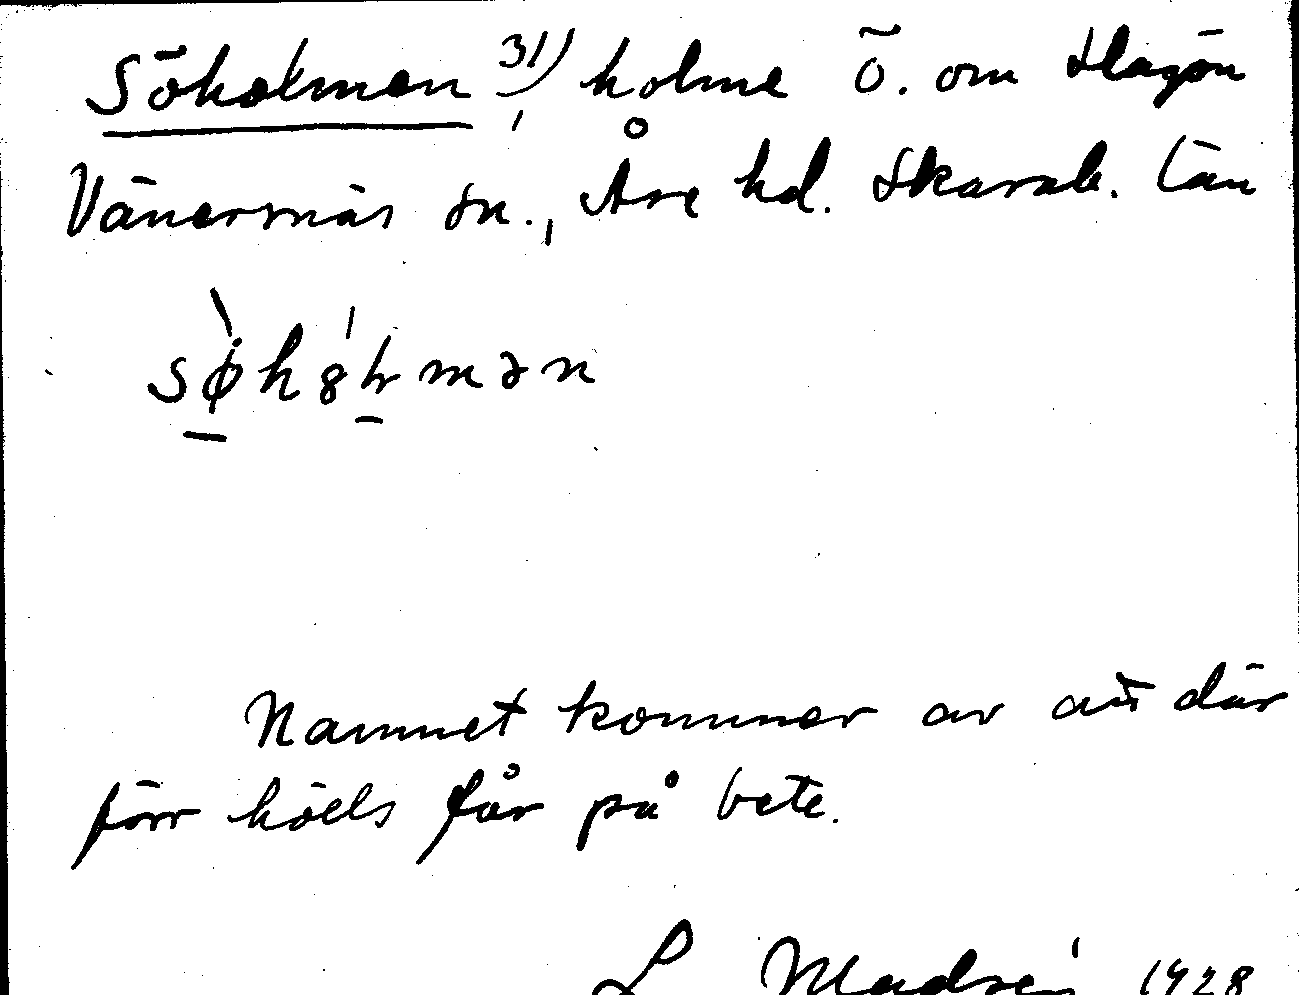 Söholmen 31) holme ö. om Slagön
Vänersnäs sn., Åse hd. Skarab. län
Namnet kommer av att där
förr hölls får på bete.
L Madsén 1928